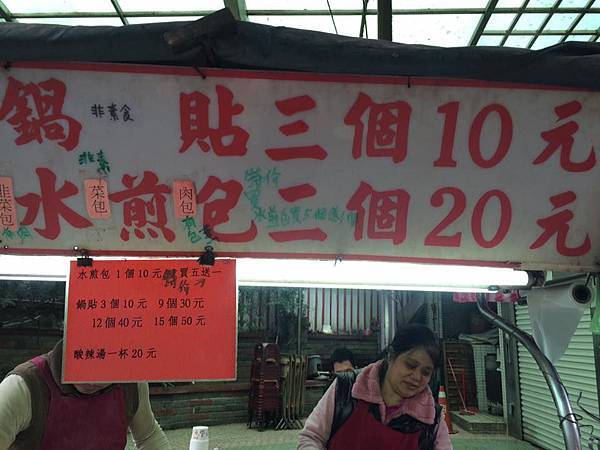 鍋貼三個10元
非素食
水煎包二個20元
非素
菜包
肉包
非菜包
特價
水煎包買5個送1個
水煎包1個10元 特價 買五送一
鍋貼3個10元 9個30元
12個40元 15個50元
酸辣湯一杯20元